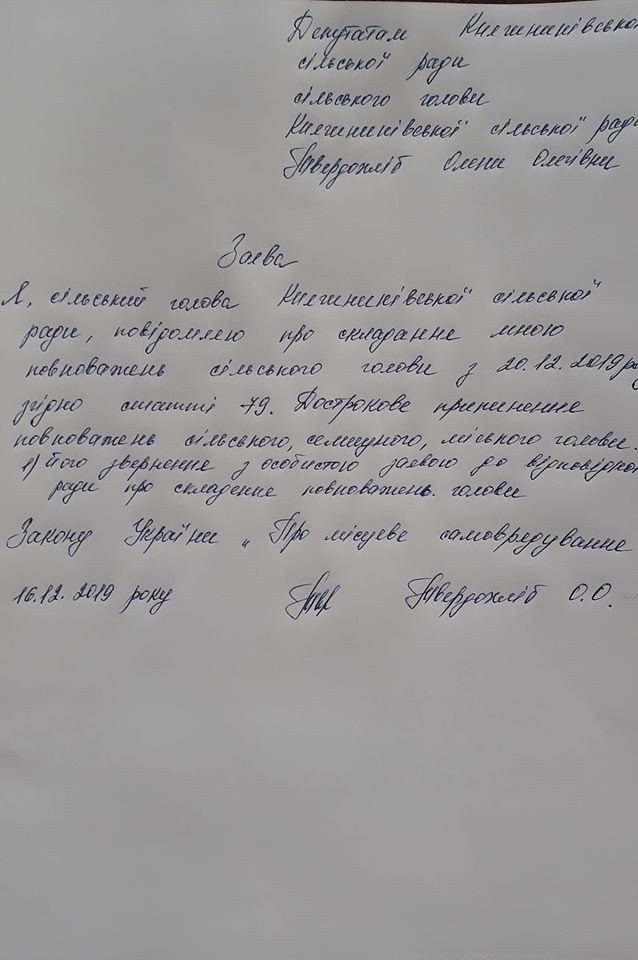 Депутатам Княгининівсько
сільської ради
сільського голови
Княгининівської сільської ради
Твердохліб Олени Олегівни
Заява
Я, сільський голова Княгининівської сільської
ради, повідомляю про складання мною
повноважень сільського голови з 20.12.2019 ро
згідно статті 79. Дострокове припинення
повноважень сільського, селищного, міського голови.
1) його звернення з особистою заявою до відповідно
ради про складення повноважень голови
Закону України „Про місцеве самоврядування
16.12.2019 року Твер Твердохліб О.О.